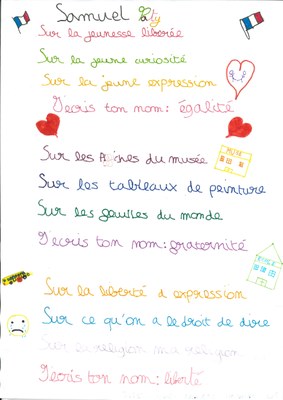 Samuel Paty
Sur la jeunesse libérée
Sur la jeune curiosité
Sur la jeune expression
J'écris ton nom: égalité
Sur les du musée
MUSÉE
Sur les tableaux de peinture
Sur les du monde
J'écris ton nom: fraternité
Sur la liberté d expression
Sur ce qu'on a le droit de dire
Sur la religion religion
J'ecris ton nom: liberté